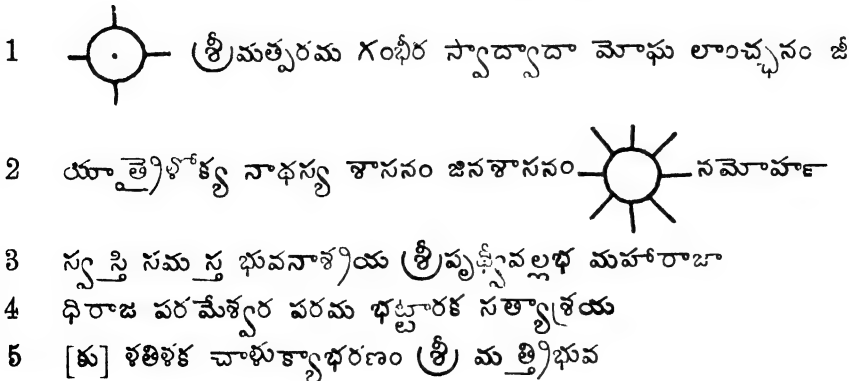 1 శ్రీమత్పరమ గంభీర స్వాద్వాదా మోఘ లాంచ్ఛనం జీ
2 యాత్త్రైళోక్య నాథస్య శాసనం జినశాసనం నమోహ౯
3 స్వస్తి సమస్త భువనాశ్రయ శ్రీపృథ్వీవల్లభ మహారాజా
4 ధిరాజ పరమేశ్వర పరమ భట్టారక సత్యాశ్రయ
5 [కు] ళతిళక చాళుక్యాభరణం శ్రీ మత్త్రిభువ